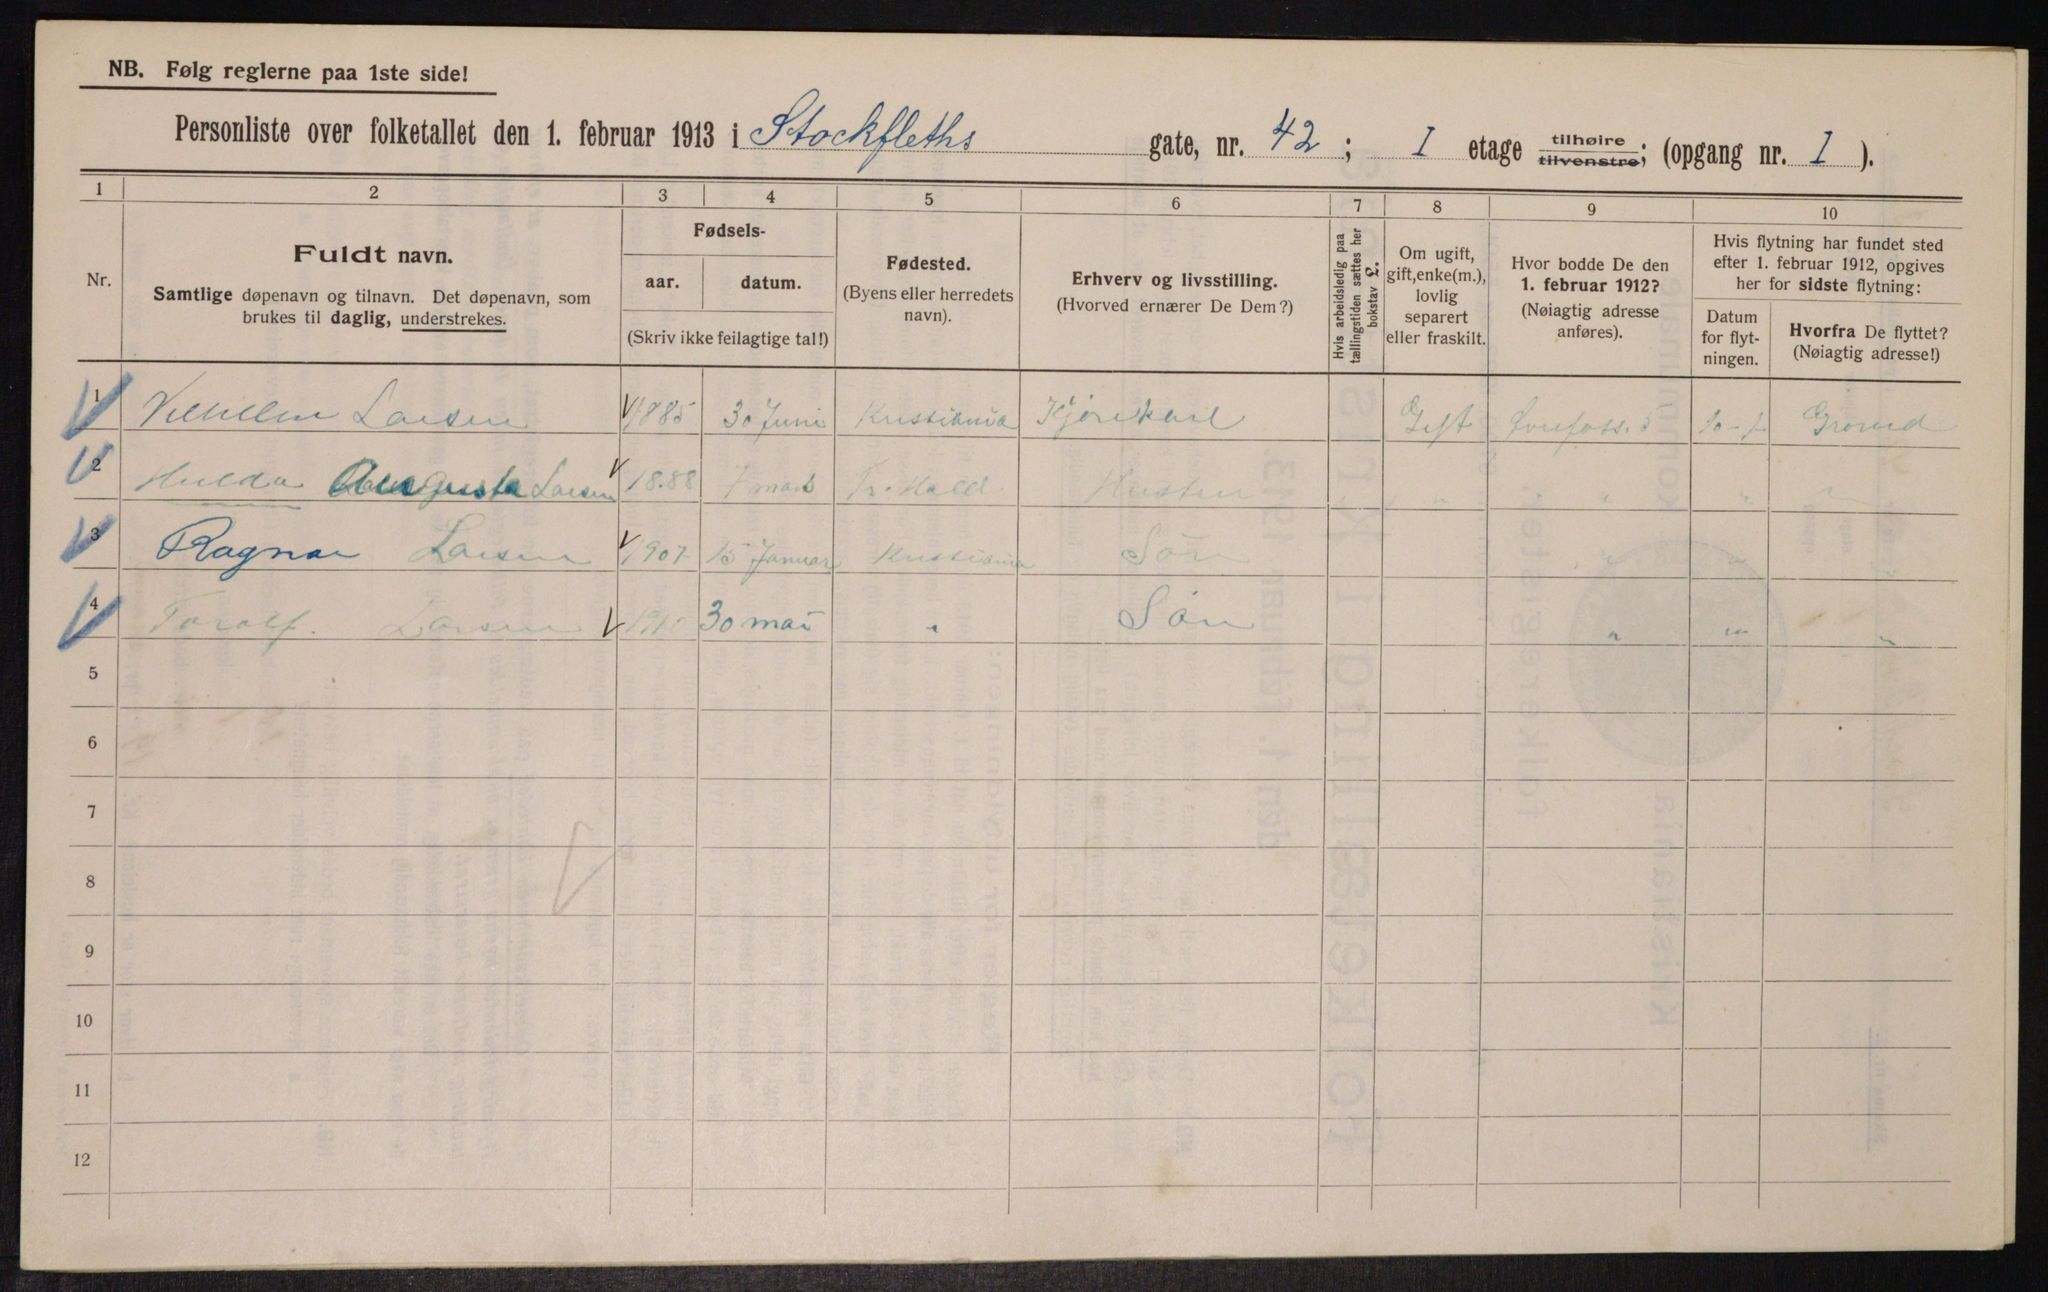 NB. Følg reglerne paa 1ste side!
Personliste over folketallet den 1. februar 1913 i Stockfleths gate, nr. 42; I etage tilhøire tilvenstre; (opgang nr. I).
1 2 3 4 5 6 7 8 9 10
Nr.
Fuldt navn.
Samtlige døpenavn og tilnavn. Det døpenavn, som
brukes til daglig, understrekes.
Fødsels-
aar. datum.
(Skriv ikke feilagtige tal!)
Fødested.
(Byens eller herredets
navn).
Erhverv og livsstilling.
(Hvorved ernærer De Dem?)
Hvis arbeidsledig paa
tællingstiden sættes her
bokstav L.
Om ugift,
gift, enke(m.),
lovlig
separert
eller fraskilt.
Hvor bodde De den
1. februar 1912?
(Nøiagtig adresse
anføres).
Hvis flytning har fundet sted
efter 1. februar 1912, opgives
her for sidste flytning:
Datum
for flyt-
ningen.
Hvorfra De flyttet?
(Nøiagtig adresse!)
1 Larsen 1885 30 Juni Kristiania Kjørekarl Gift Grorud
2 Hulda Augusta Larsen 1888 7 Fr. Hald Hustru " " "
3 Ragnar Larsen 1907 15 Januar Kristiania Søn " "
4 Toralf Larsen 30 mai " Søn " " "
5
6
7
8
9
10
11
12